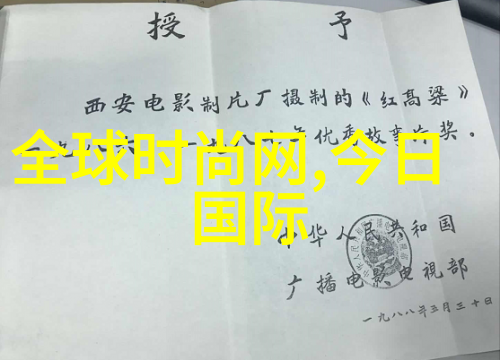 授予
西安电影制片厂摄制的《红高粱》
全球时尚网,今日
国际
优秀故事片奖。
中华人民共和国
广播电影电视部
一九八八年三月三十日